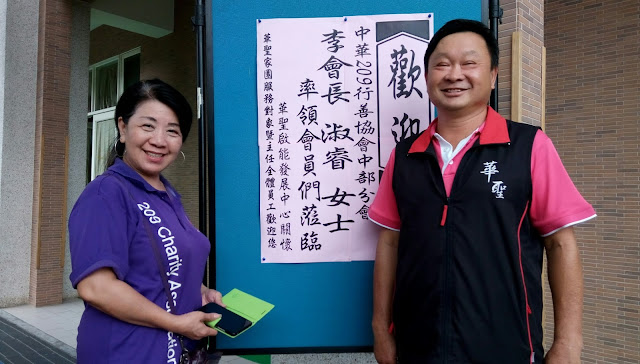 歡迎
中華209行善協會中部分會
李會長 淑睿 女士
率領會員們蒞臨
華聖啟能發展中心關懷
華聖家園服務對象暨主任全體員工歡迎您
209 Charity
華聖